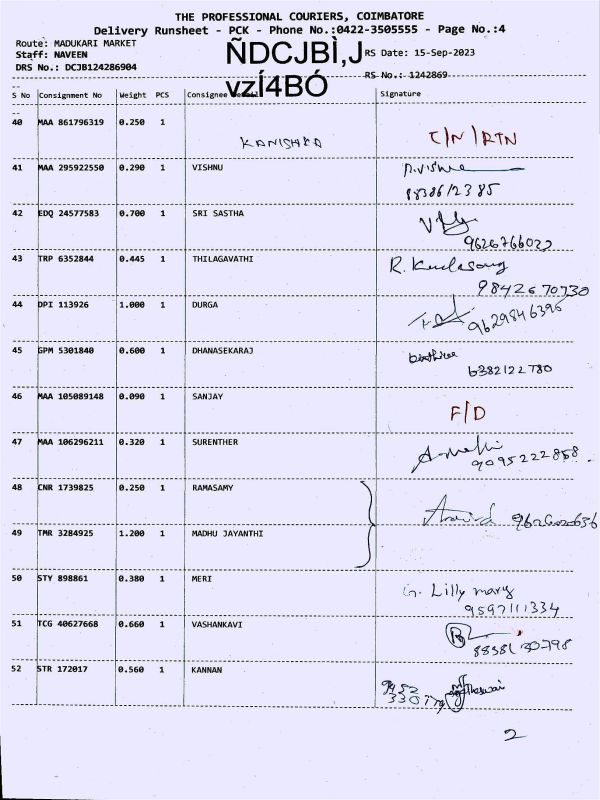 THE PROFESSIONAL COURIERS, COIMBATORE
Delivery Runsheet - PCK - Phone No.:0422-3505555 - Page No.:4
Route: MADUKARI MARKET
Staff: NAVEEN
DRS No.: DCJB124286904
ÑDCJBÌ,J
vzÍ4BÓ
RS Date: 15-Sep-2023
RS No.: 1242869
S No Consignment No Weight PCS Consignee Signature
40 MAA 861796319 0.250 1 KANISHKA C/N/RTN
41 MAA 295922550 0.290 1 VISHNU
42 EDQ 24577583 0.700 1 SRI SASTHA
43 TRP 6352844 0.445 1 THILAGAVATHI R.
9842670730
44 DPI 113926 1.000 1 DURGA
9629846396
45 GPM 5301840 0.600 1 DHANASEKARAJ
6382122780
46 MAA 105089148 0.090 1 SANJAY F/D
47 MAA 106296211 0.320 1 SURENTHER
9095222858
48 CNR 1739825 0.250 1 RAMASAMY
49 TMR 3284925 1.200 1 MADHU JAYANTHI
50 STY 898861 0.380 1 MERI G. Lilly mary
9597111334
51 TCG 40627668 0.660 1 VASHANKAVI
52 STR 172017 0.560 1 KANNAN
2